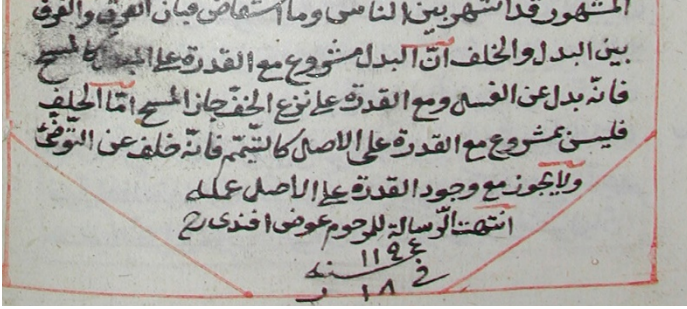 المشهور قد اشتهر بين الناس وما استفاض فبان الفرق والفرق
بين البدل والخلف انّ البدل مشروع مع القدرة على كالمسح
فانّه بدل عن الغسل ومع القدرة على نزع الخفّ جاز المسح امّا الخلف
فليس بمشروع مع القدرة على الاصل كالتيمّم فانّه خلف عن التّوضّئ
ولا يجوز مع وجود القدرة على الاصل عمله
انتهت الرّسالة للمرحوم عوض افندى رح
١١٩٤
سنه
١٨